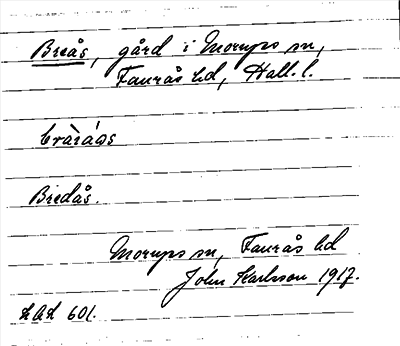 Breås, gård i Morups sn,
Faurås hd, Hall. l.
Bredås.
Morups sn, Faurås hd
John Karlsson 1917.
LAL 601.